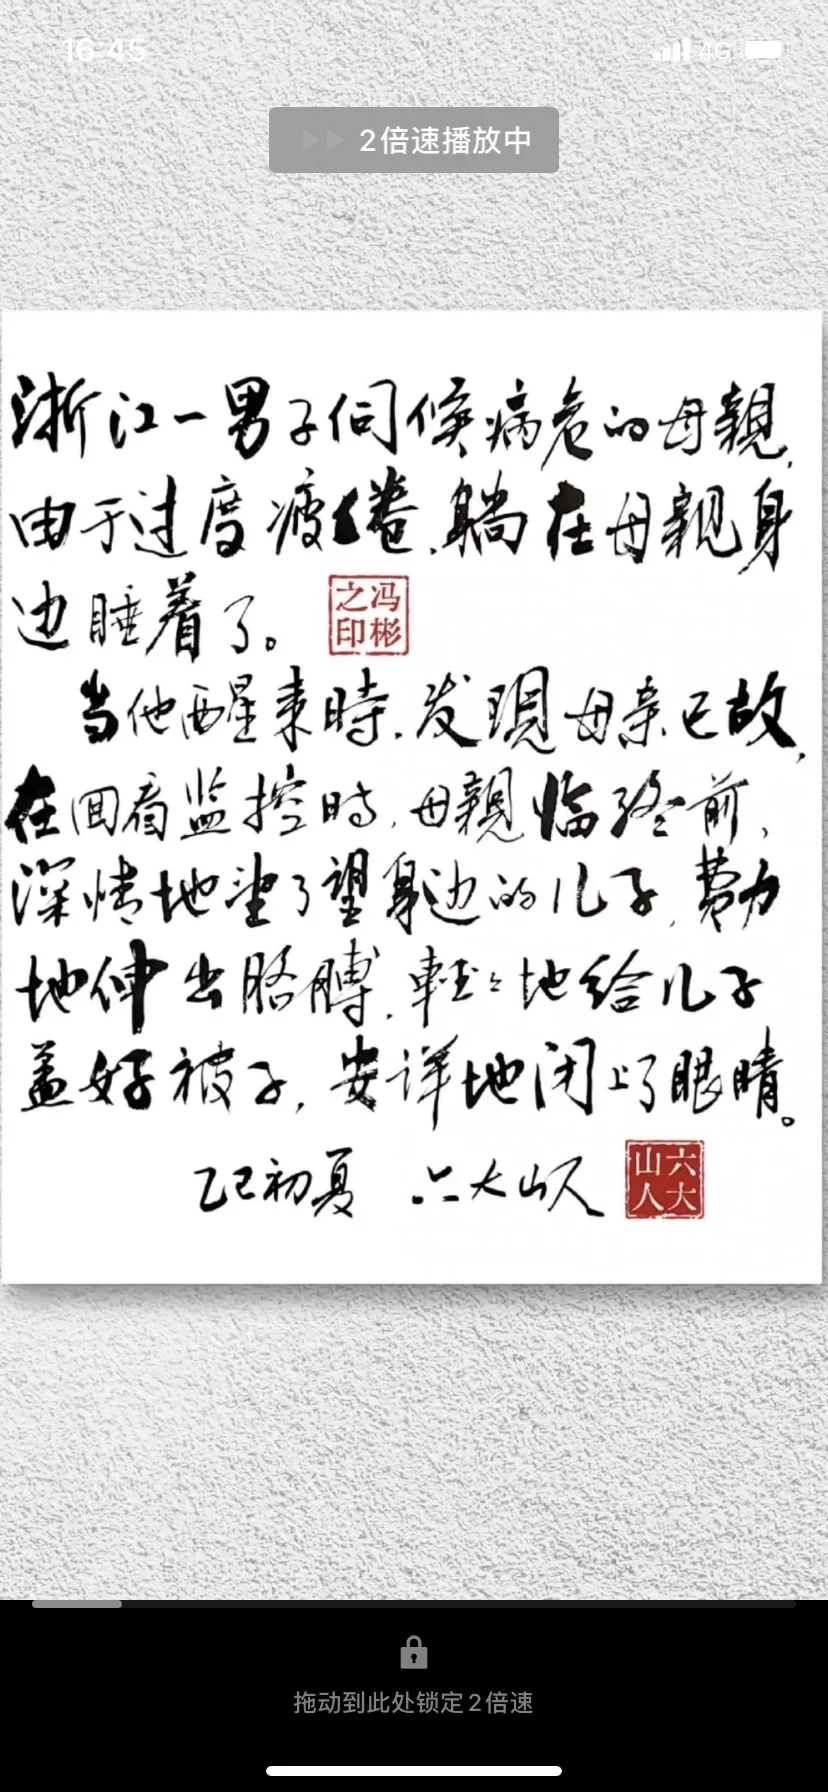 16:45
4G
2倍速播放中
浙江一男子伺候病危的母親,
由于过度疲倦,躺在母親身
边睡着了。
冯彬之印
当他醒来時,发現母亲已故,
在回看监控時,母親临终前,
深情地望了望身边的儿子,费力
地伸出胳膊,輕々地给儿子
盖好被子,安详地闭上了眼睛。
乙巳初夏 六大山人
六大山人
拖动到此处锁定2倍速